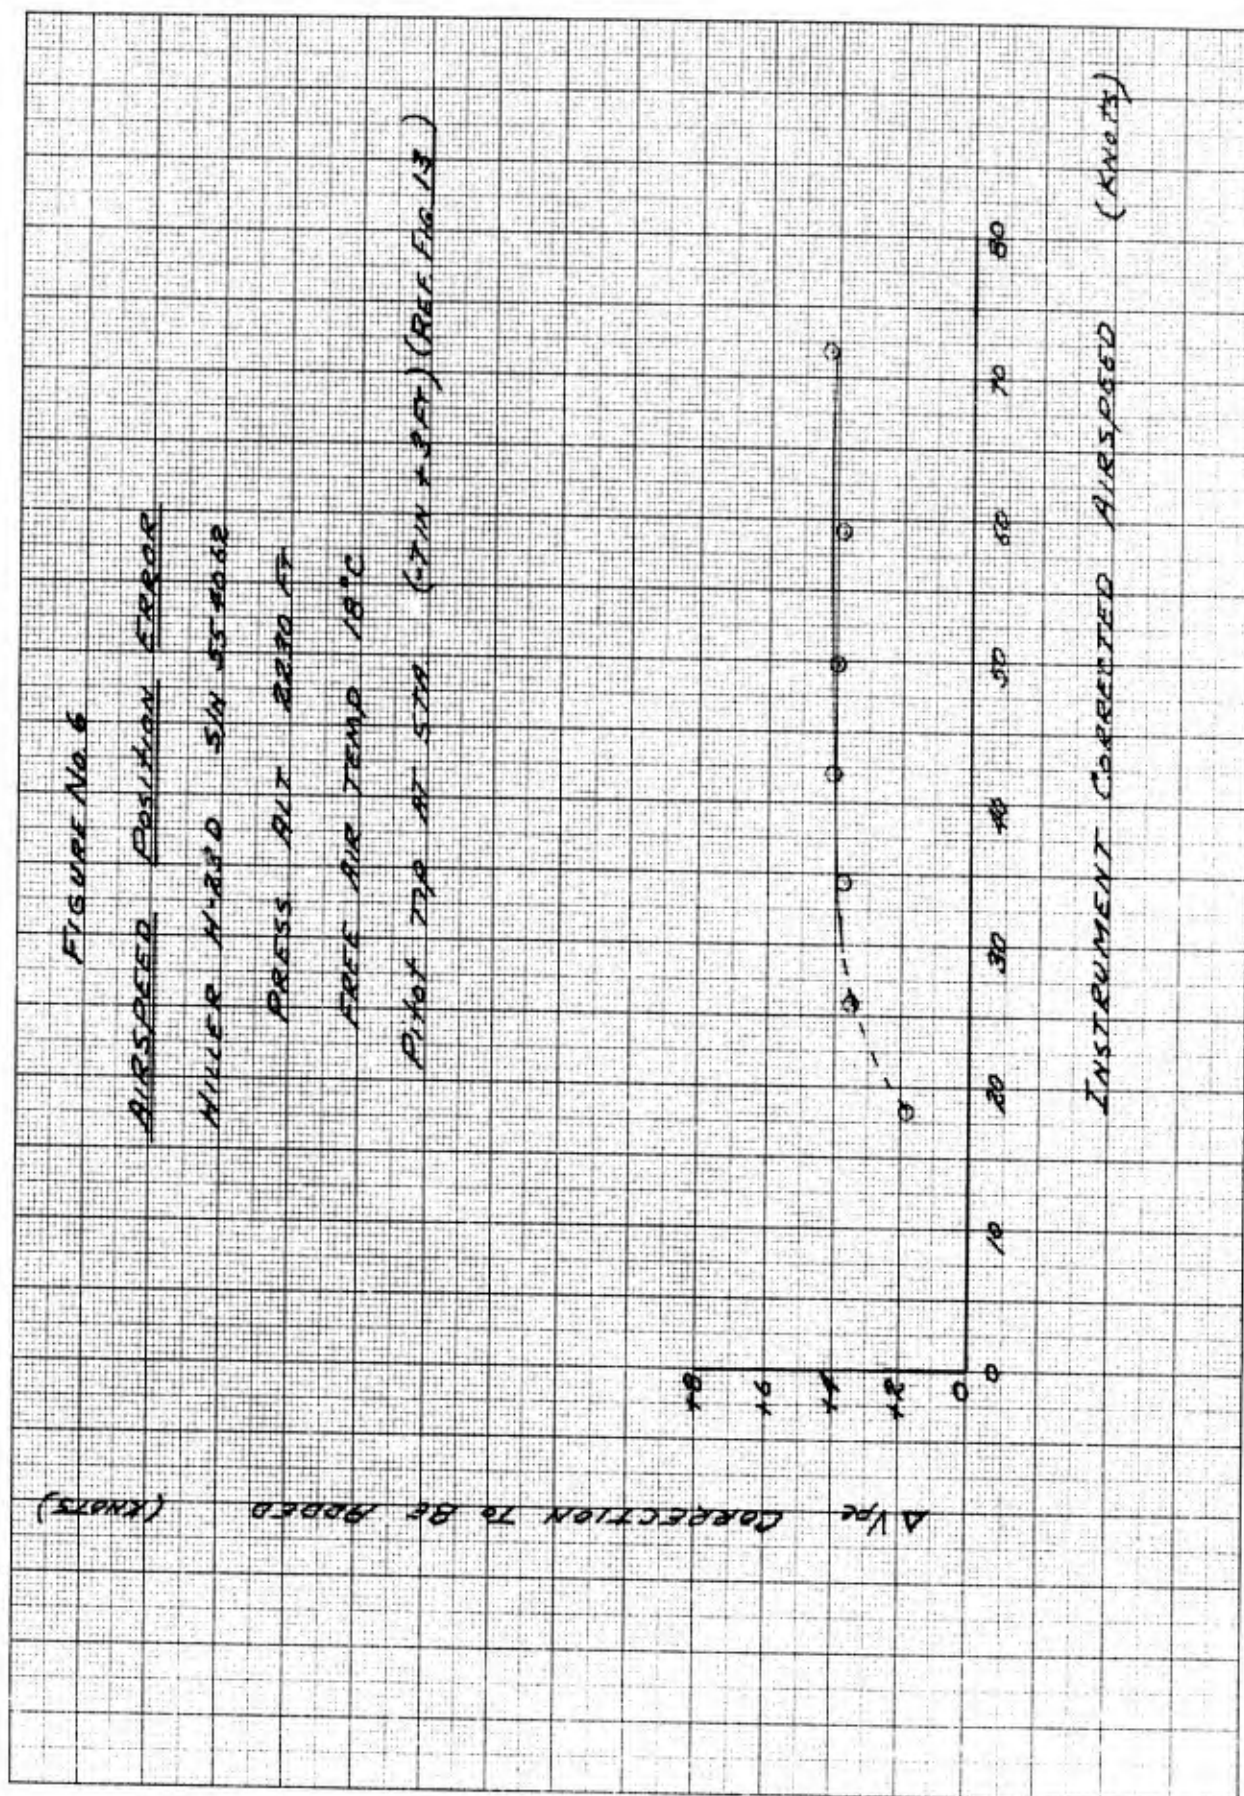 FIGURE No. 6
AIRSPEED POSITION ERROR
HILLER H-23D S/N 55 4062
PRESS. ALT 2230 FT
FREE AIR TEMP 18°C
Pitot TIP AT STA (-7 IN + 3 FT) (REF. FIG 13)
ΔVpc CORRECTION TO BE ADDED (KNOTS)
+8
+6
+4
+2
0
0 10 20 30 40 50 60 70 80
INSTRUMENT CORRECTED AIRSPEED (KNOTS)